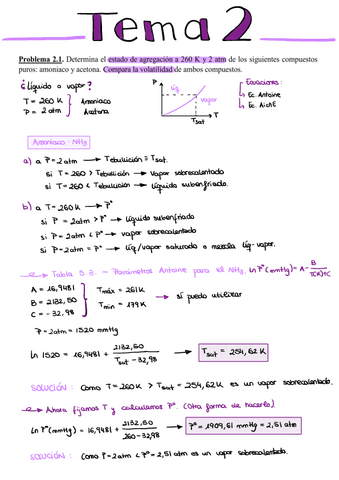 Tema 2
Problema 2.1. Determina el estado de agregación a 260 K y 2 atm de los siguientes compuestos
puros: amoniaco y acetona. Compara la volatilidad de ambos compuestos.
¿líquido o vapor?
T = 260 K
P = 2 atm
Amoniaco
Acetona
P
líq
vapor
T
Tsat
Ecuaciones:
Ec. Antoine
Ec. Aich E
Amoniaco: NH3
a) a P = 2 atm → Tebullición = Tsat.
si T = 260 > Tebullición → vapor sobrecalentado
si T = 260 < Tebullición → líquido subenfriado.
b) a T = 260 K → P°
si P = 2 atm > P° → líquido subenfriado
si P = 2 atm < P° → vapor sobrecalentado
si P = 2 atm = P° → líq/vapor saturado o mezcla líq-vapor.
Tabla B.2. – Parámetros Antoine para el NH3. ln P°(mmHg) = A - B / T(K)+C
A = 16,9481
B = 2132,50
C = -32.98
Tmáx = 261 K
Tmin = 179 K
→ sí puedo utilizar
P = 2 atm = 1520 mmHg
ln 1520 = 16,9481 + 2132,50 / Tsat - 32,98 → Tsat = 254,62 K
SOLUCIÓN: Como T = 260 K > Tsat = 254,62 K es un vapor sobrecalentado.
Ahora fijamos T y calculamos P°. (Otra forma de hacerlo)
ln P°(mmHg) = 16,9481 + 2132,50 / 260 - 32,98 → P° = 1909,61 mmHg = 2,51 atm
SOLUCIÓN: Como P = 2 atm < P° = 2,51 atm es un vapor sobrecalentado.